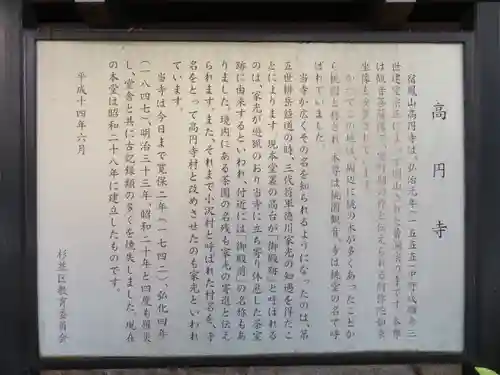 高円寺
宿鳳山高円寺は、弘治元年(一五五五)中野成願寺三
世建室宗正により開山された曹洞宗の寺です。本尊
は観音菩薩像で、室町期の作と伝えられる阿弥陀如来
坐像も安置されています。
かつてこの地域は、周辺に桃の木が多くあったことか
ら桃園と称され、本尊は桃園観音、寺は桃堂の名で呼
ばれていました。
当寺が広くその名を知られるようになったのは、第
五世耕岳益道の時、三代将軍徳川家光の知遇を得たこ
とによります。現本堂裏の高台が「御殿跡」と呼ばれる
のは、家光が遊猟のおり当寺に立ち寄り休息した茶室
跡に由来するといわれ、付近には「御殿前」の名称もあ
りました。境内にある茶園の名残も家光の寄進と伝え
られます。また、それまで小沢村と呼ばれた村名を、寺
名をとって高円寺村と改めさせたのも家光といわれ
ています。
当寺は今日まで寛保二年(一七四二)、弘化四年
(一八四七)、明治三十三年、昭和二十年と四度も罹災
し、堂舎と共に古記録類の多くを焼失しました。現在
の本堂は昭和二十八年に建立したものです。
平成十四年六月
杉並区教育委員会